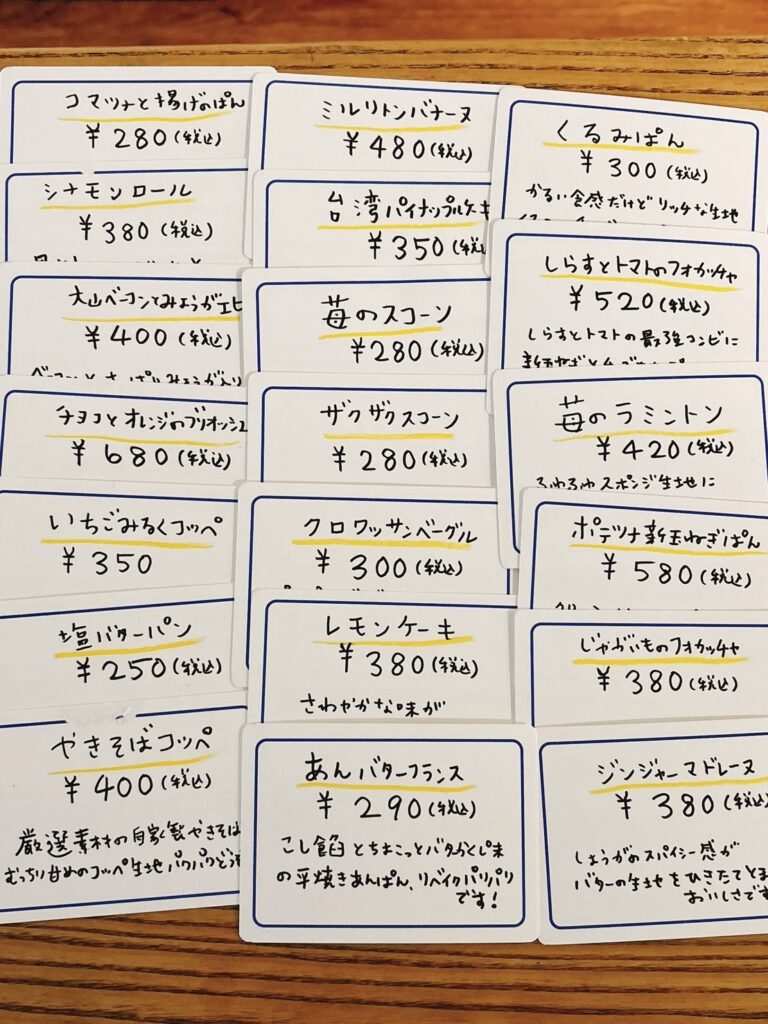 コマツナと揚げのぱん
¥280(税込)
シナモンロール
¥380(税込)
大山ベーコンとみょうがエピ
¥400(税込)
ベーコンとさっぱりみょうが入り
チョコとオレンジのブリオッシュ
¥680(税込)
いちごみるくコッペ
¥350
塩バターパン
¥250(税込)
やきそばコッペ
¥400(税込)
厳選素材の自家製やきそば
むっちり甘めのコッペ生地パクパクどうぞ
ミルリトンバナーヌ
¥480(税込)
台湾パイナップルケーキ
¥350(税込)
苺のスコーン
¥280(税込)
ザクザクスコーン
¥280(税込)
クロワッサンベーグル
¥300(税込)
レモンケーキ
¥380(税込)
さわやかな味が
あんバターフランス
¥290(税込)
こし餡とちょこっとバタがくし味
の平焼きあんぱん、リベイクパリパリ
です!
くるみぱん
¥300(税込)
かるい食感だけどリッチな生地
しらすとトマトのフォカッチャ
¥520(税込)
しらすとトマトの最強コンビに
苺のラミントン
¥420(税込)
ふわふわスポンジ生地に
ポテツナ新玉ねぎぱん
¥580(税込)
じゃがいものフォカッチャ
¥380(税込)
ジンジャーマドレーヌ
¥380(税込)
しょうがのスパイシー感が
バターの生地をひきたてとま
おいしさです